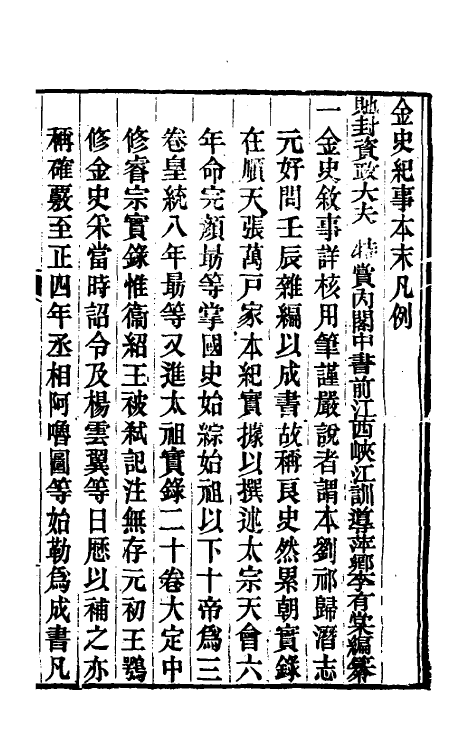 金史紀事本末凡例
貤封資政大夫 特賞內閣中書前江西峽江訓導萍鄉李有棠編纂
一金史敘事詳核用筆謹嚴說者謂本劉祁歸潛志
元好問壬辰雜編以成書故稱良史然累朝實錄
在順天張萬戸家本紀實據以撰述太宗天會六
年命完顏勗等掌國史始綜始祖以下十帝爲三
卷皇統八年勗等又進太祖實錄二十卷大定中
修睿宗實錄惟衞紹王被弑記注無存元初王鶚
修金史采當時詔令及楊雲翼等日厯以補之亦
稱確覈至正四年丞相阿嚕圖等始勒爲成書凡